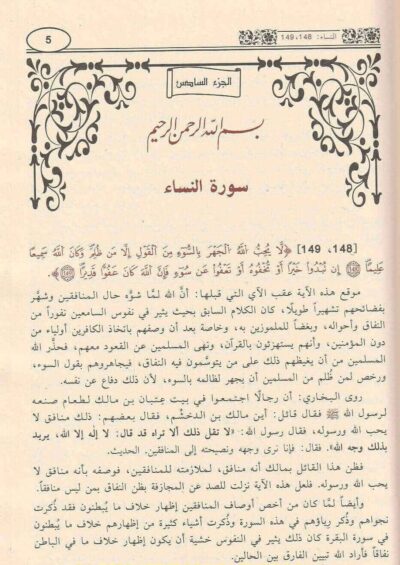 النساء: 148، 149
5
الجزء السادس
بسم الله الرحمن الرحيم
سورة النساء
[148، 149] ﴿لَّا يُحِبُّ اللَّهُ الْجَهْرَ بِالسُّوءِ مِنَ الْقَوْلِ إِلَّا مَن ظُلِمَ وَكَانَ اللَّهُ سَمِيعًا
عَلِيمًا ﴿١٤٨﴾ إِن تُبْدُوا خَيْرًا أَوْ تُخْفُوهُ أَوْ تَعْفُوا عَن سُوءٍ فَإِنَّ اللَّهَ كَانَ عَفُوًّا قَدِيرًا ﴿١٤٩﴾﴾.
موقع هذه الآية عقب الآي التي قبلها: أنّ الله لمّا شوّه حال المنافقين وشهَّر
بفضائحهم تشهيراً طويلًا، كان الكلام السابق بحيث يثير في نفوس السامعين نفوراً من
النفاق وأحواله، وبغضاً للملموزين به، وخاصة بعد أن وصفهم باتخاذ الكافرين أولياء من
دون المؤمنين، وأنهم يستهزئون بالقرآن، ونهى المسلمين عن القعود معهم، فحذّر الله
المسلمين من أن يغيظهم ذلك على من يتوسَّمون فيه النفاق، فيجاهروهم بقول السوء،
ورخص لمن ظُلم من المسلمين أن يجهر لظالمه بالسوء، لأن ذلك دفاع عن نفسه.
روى البخاري: أن رجالًا اجتمعوا في بيت عِتبان بن مالك لطعام صنعه
لرسول الله ﷺ فقال قائل: أين مالك بن الدخشُم، فقال بعضهم: ذلك منافق لا
يحب الله ورسوله، فقال رسول الله: «لا تقل ذلك ألا تراه قد قال: لا إله إلا الله، يريد
بذلك وجه الله». فقال: فإنا نرى وجهه ونصيحته إلى المنافقين. الحديث.
فظن هذا القائل بمالك أنه منافق، لملازمته للمنافقين، فوصفه بأنه منافق لا
يحب الله ورسوله. فلعل هذه الآية نزلت للصد عن المجازفة بظن النفاق بمن ليس منافقاً.
وأيضاً لمّا كان من أخص أوصاف المنافقين إظهار خلاف ما يُبطنون فقد ذُكرت
نجواهم وذُكر رياؤهم في هذه السورة وذُكرت أشياء كثيرة من إظهارهم خلاف ما يُبطنون
في سورة البقرة كان ذلك يثير في النفوس خشية أن يكون إظهار خلاف ما في الباطن
نفاقاً فأراد الله تبيين الفارق بين الحالين.